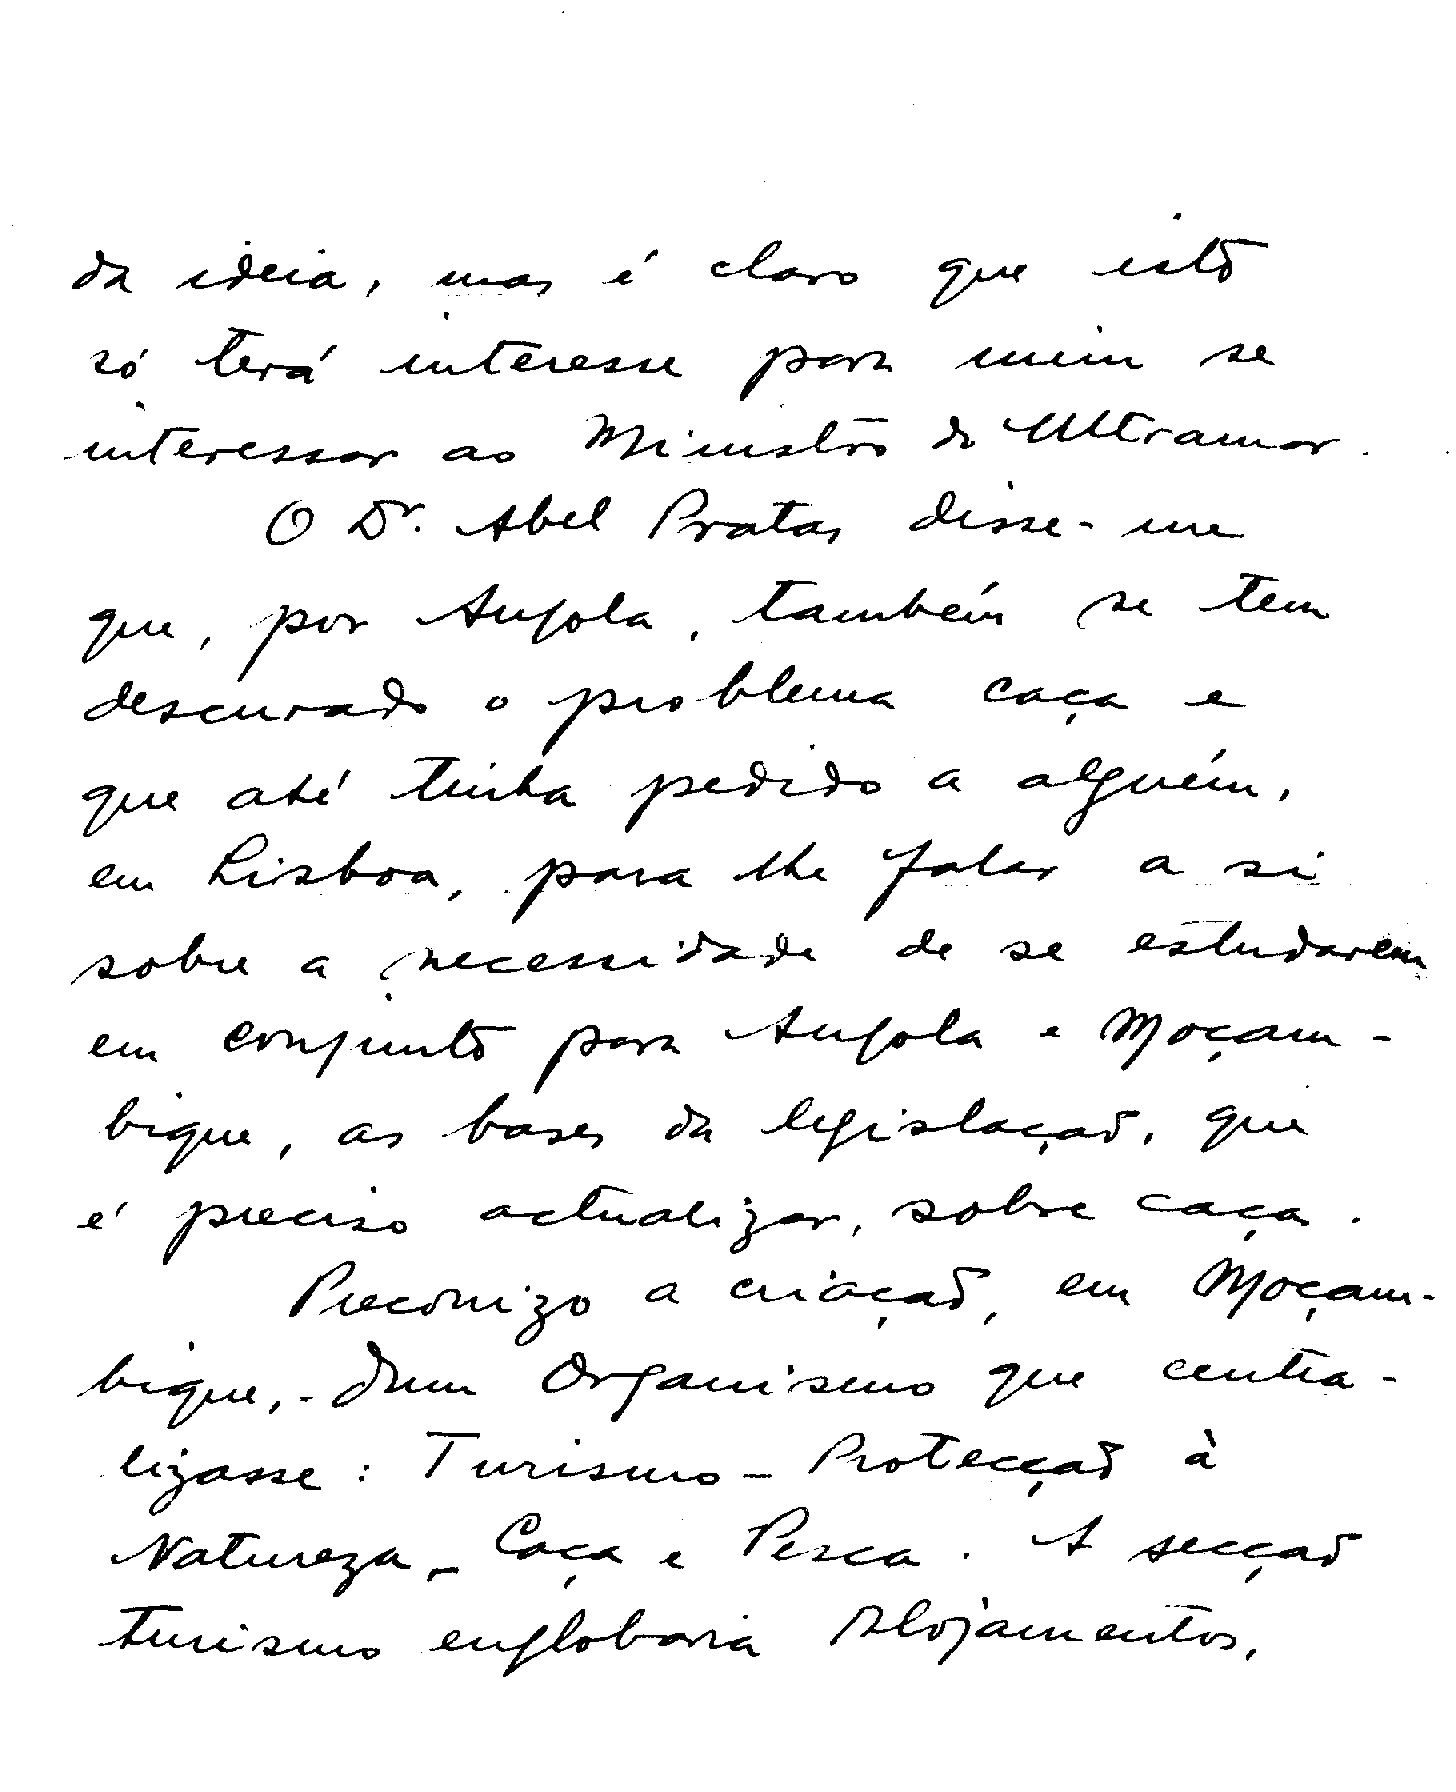 da ideia, mas é claro que isto
só terá interesse para mim se
interessar ao Ministro do Ultramar.
O Dr. Abel Pratas disse-me
que, por Angola, também se tem
descurado o problema caça e
que até tinha pedido a alguém,
em Lisboa, para lhe falar a si
sobre a necessidade de se estudarem
em conjunto para Angola e Moçam-
bique, as bases da legislação, que
é preciso actualizar, sobre caça.
Preconizo a criação, em Moçam-
bique, - dum Organismo que centra-
lizasse: Turismo - Protecção à
Natureza - Caça e Pesca. A secção
turismo englobaria Alojamentos,